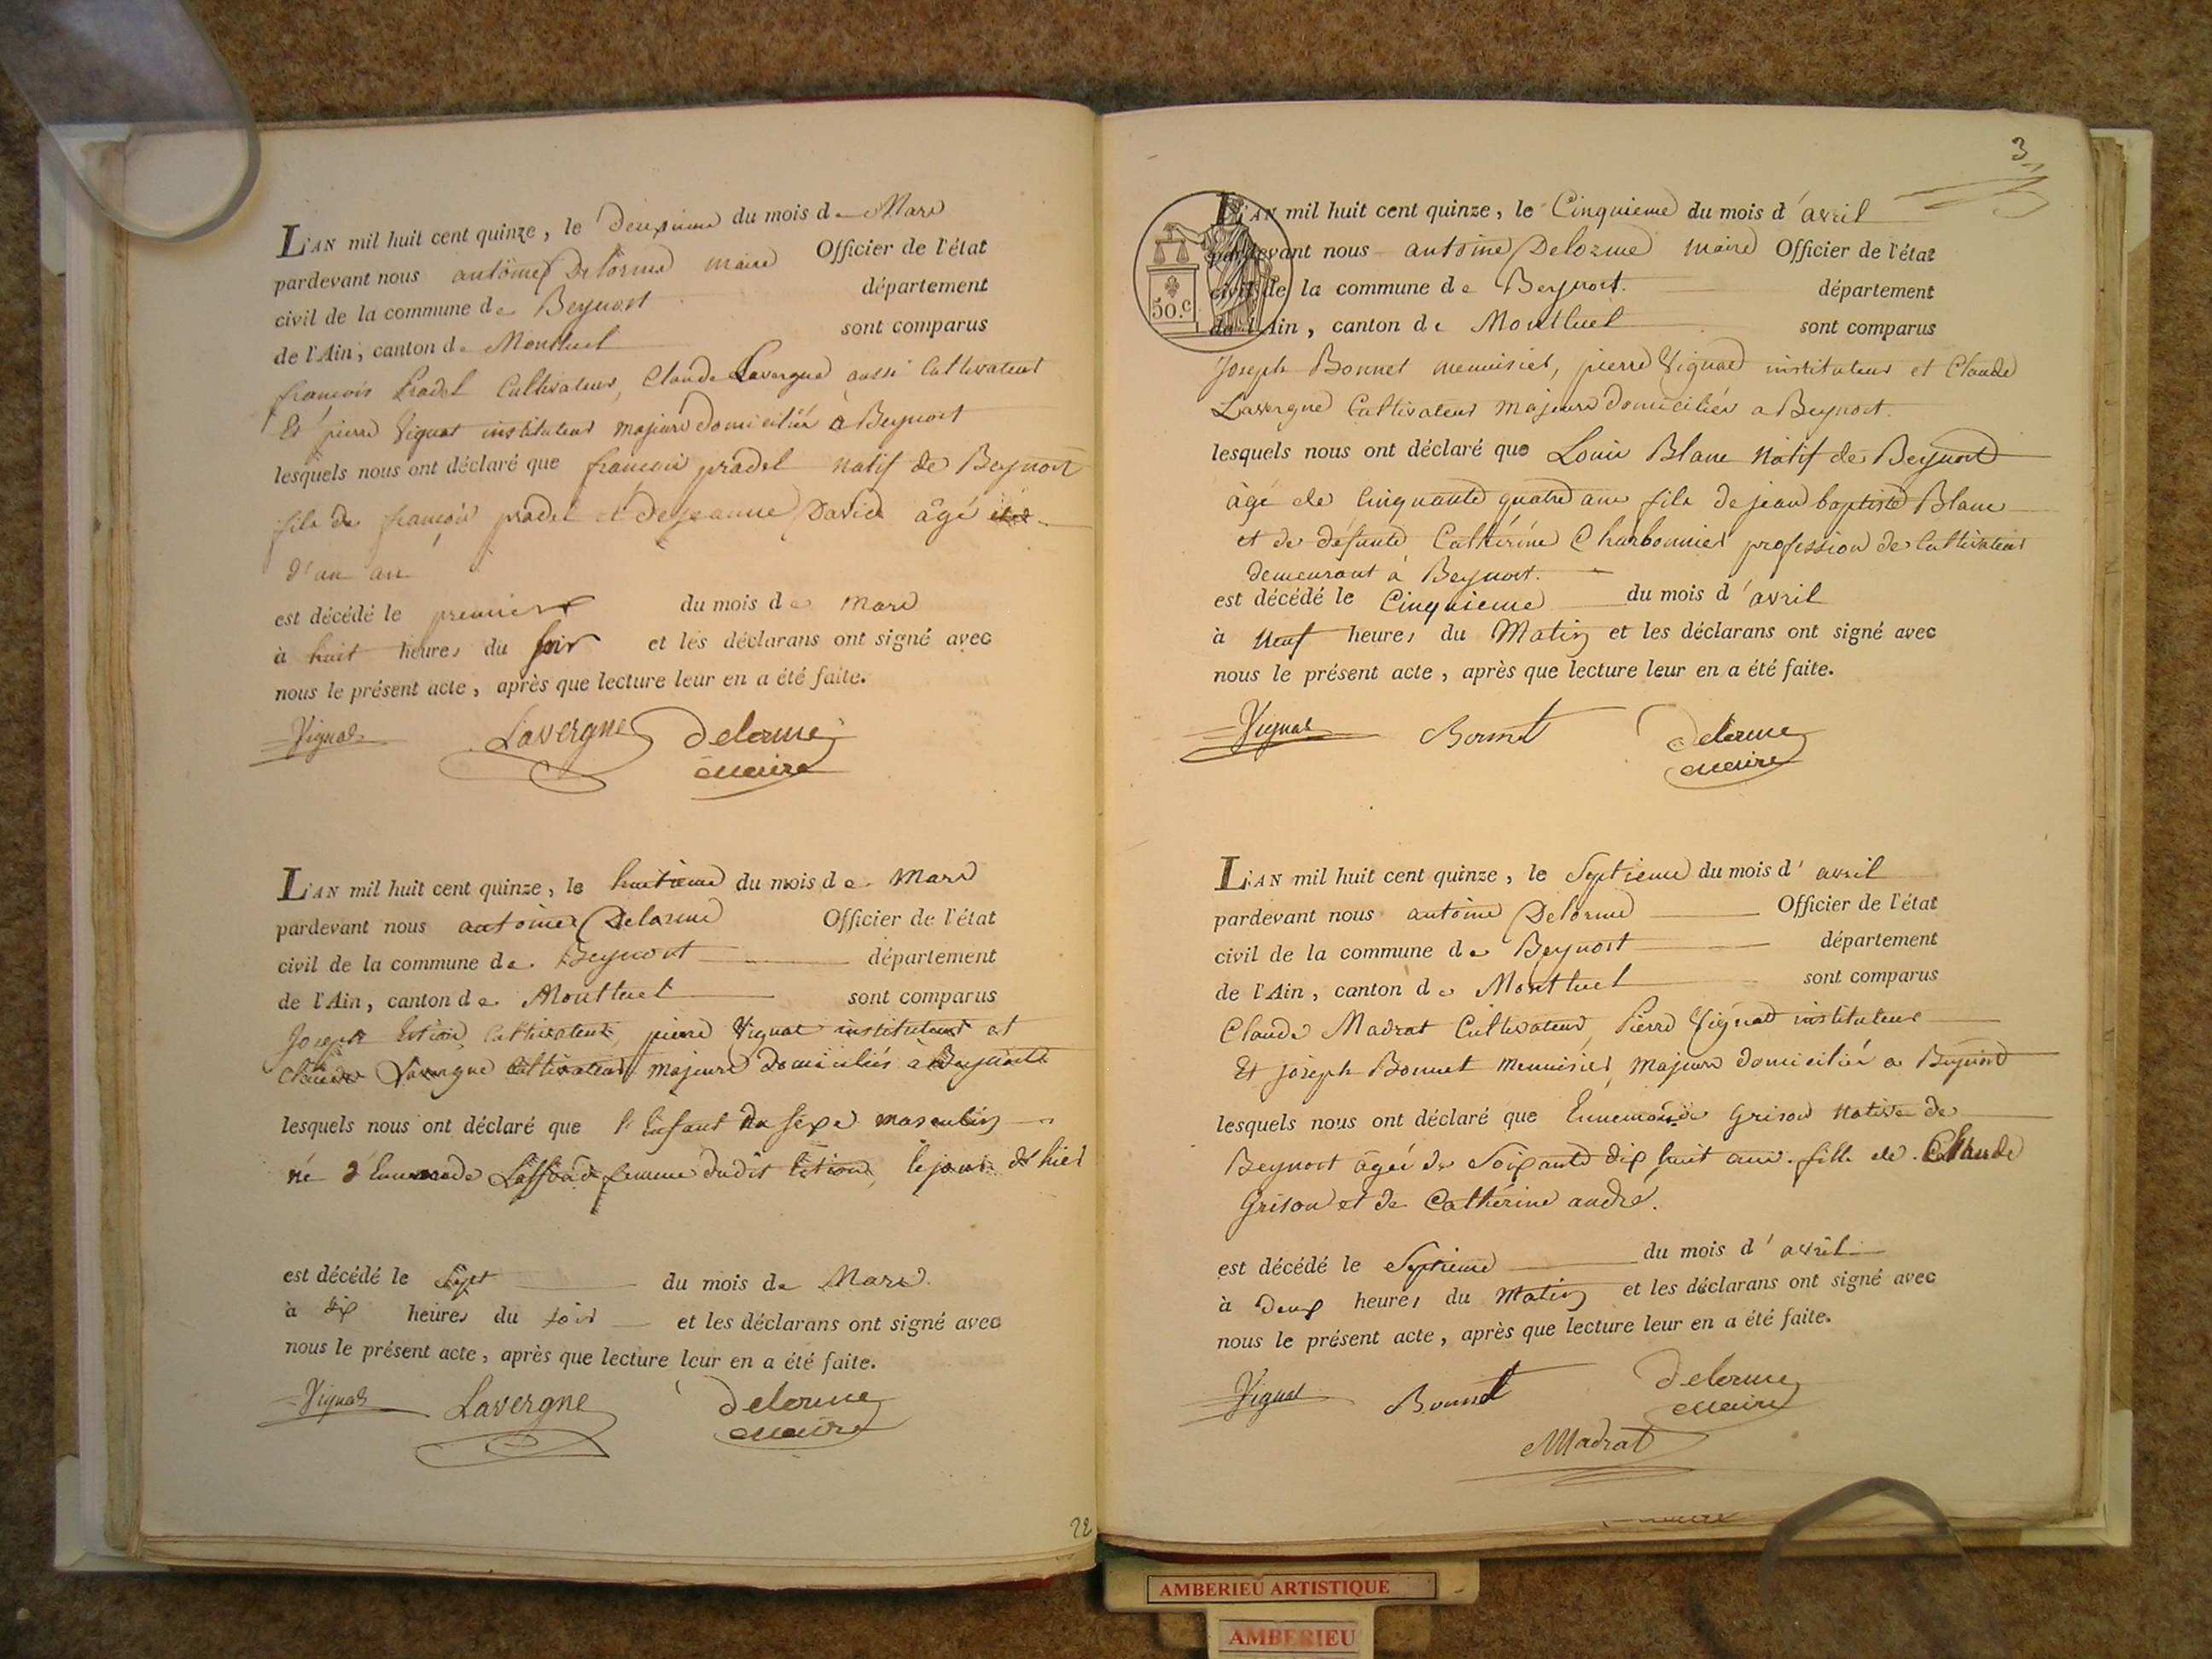 L'AN mil huit cent quinze, le deuxieme du mois de Mars
pardevant nous antoine Delorme maire Officier de l'état
civil de la commune de Beynost département
de l'Ain, canton de Montluel sont comparus
françois Pradel Cultivateur, Claude Lavergne aussi Cultivateur
Et pierre Vignat instituteur majeurs domiciliés à Beynost
lesquels nous ont déclaré que françois pradel natif de Beynost
fils de françois pradel et de jeanne David âgé
d'un an
est décédé le premier du mois de mars
à huit heures du soir et les déclarans ont signé avec
nous le présent acte, après que lecture leur en a été faite.
Vignat Lavergne Delorme
maire
L'AN mil huit cent quinze, le huitieme du mois de Mars
pardevant nous antoine Delorme Officier de l'état
civil de la commune de Beynost département
de l'Ain, canton de Montluel sont comparus
Joseph cultivateur, pierre Vignat instituteur et
Claude Lavergne Cultivateur majeurs domiciliés à Beynost
lesquels nous ont déclaré que l'Enfant du sexe masculin
né femme dudit le jour d'hier
est décédé le Sept du mois de Mars
à dix heures du soir et les déclarans ont signé avec
nous le présent acte, après que lecture leur en a été faite.
Vignat Lavergne Delorme
maire
22
3
50.c
L'AN mil huit cent quinze, le Cinquieme du mois d'avril
pardevant nous antoine Delorme maire Officier de l'état
civil de la commune de Beynost département
de l'Ain, canton de Montluel sont comparus
Joseph Bonnet menuisier, pierre Vignat instituteur et Claude
Lavergne Cultivateur majeurs domiciliés a Beynost
lesquels nous ont déclaré que Louis Blanc natif de Beynost
âgé de Cinquante quatre ans fils de jean baptiste Blanc
et de défunte Cathérine Charbonnier profession de Cultivateur
demeurant à Beynost.
est décédé le Cinquieme du mois d'avril
à Neuf heures du Matin et les déclarans ont signé avec
nous le présent acte, après que lecture leur en a été faite.
Vignat Bonnet Delorme
maire
L'AN mil huit cent quinze, le Septieme du mois d'avril
pardevant nous antoine Delorme Officier de l'état
civil de la commune de Beynost département
de l'Ain, canton de Montluel sont comparus
Claude Madrat Cultivateur, Pierre Vignat instituteur
Et joseph Bonnet menuisier, majeurs domiciliés a Beynost
lesquels nous ont déclaré que Ennemonde Grison native de
Beynost âgée de Soixante dix huit ans fille de Claude
Grison et de Cathérine andré.
est décédé le Septieme du mois d'avril
à Deux heures du Matin et les déclarans ont signé avec
nous le présent acte, après que lecture leur en a été faite.
Vignat Bonnet Delorme
maire
Madrat
AMBERIEU ARTISTIQUE
AMBERIEU